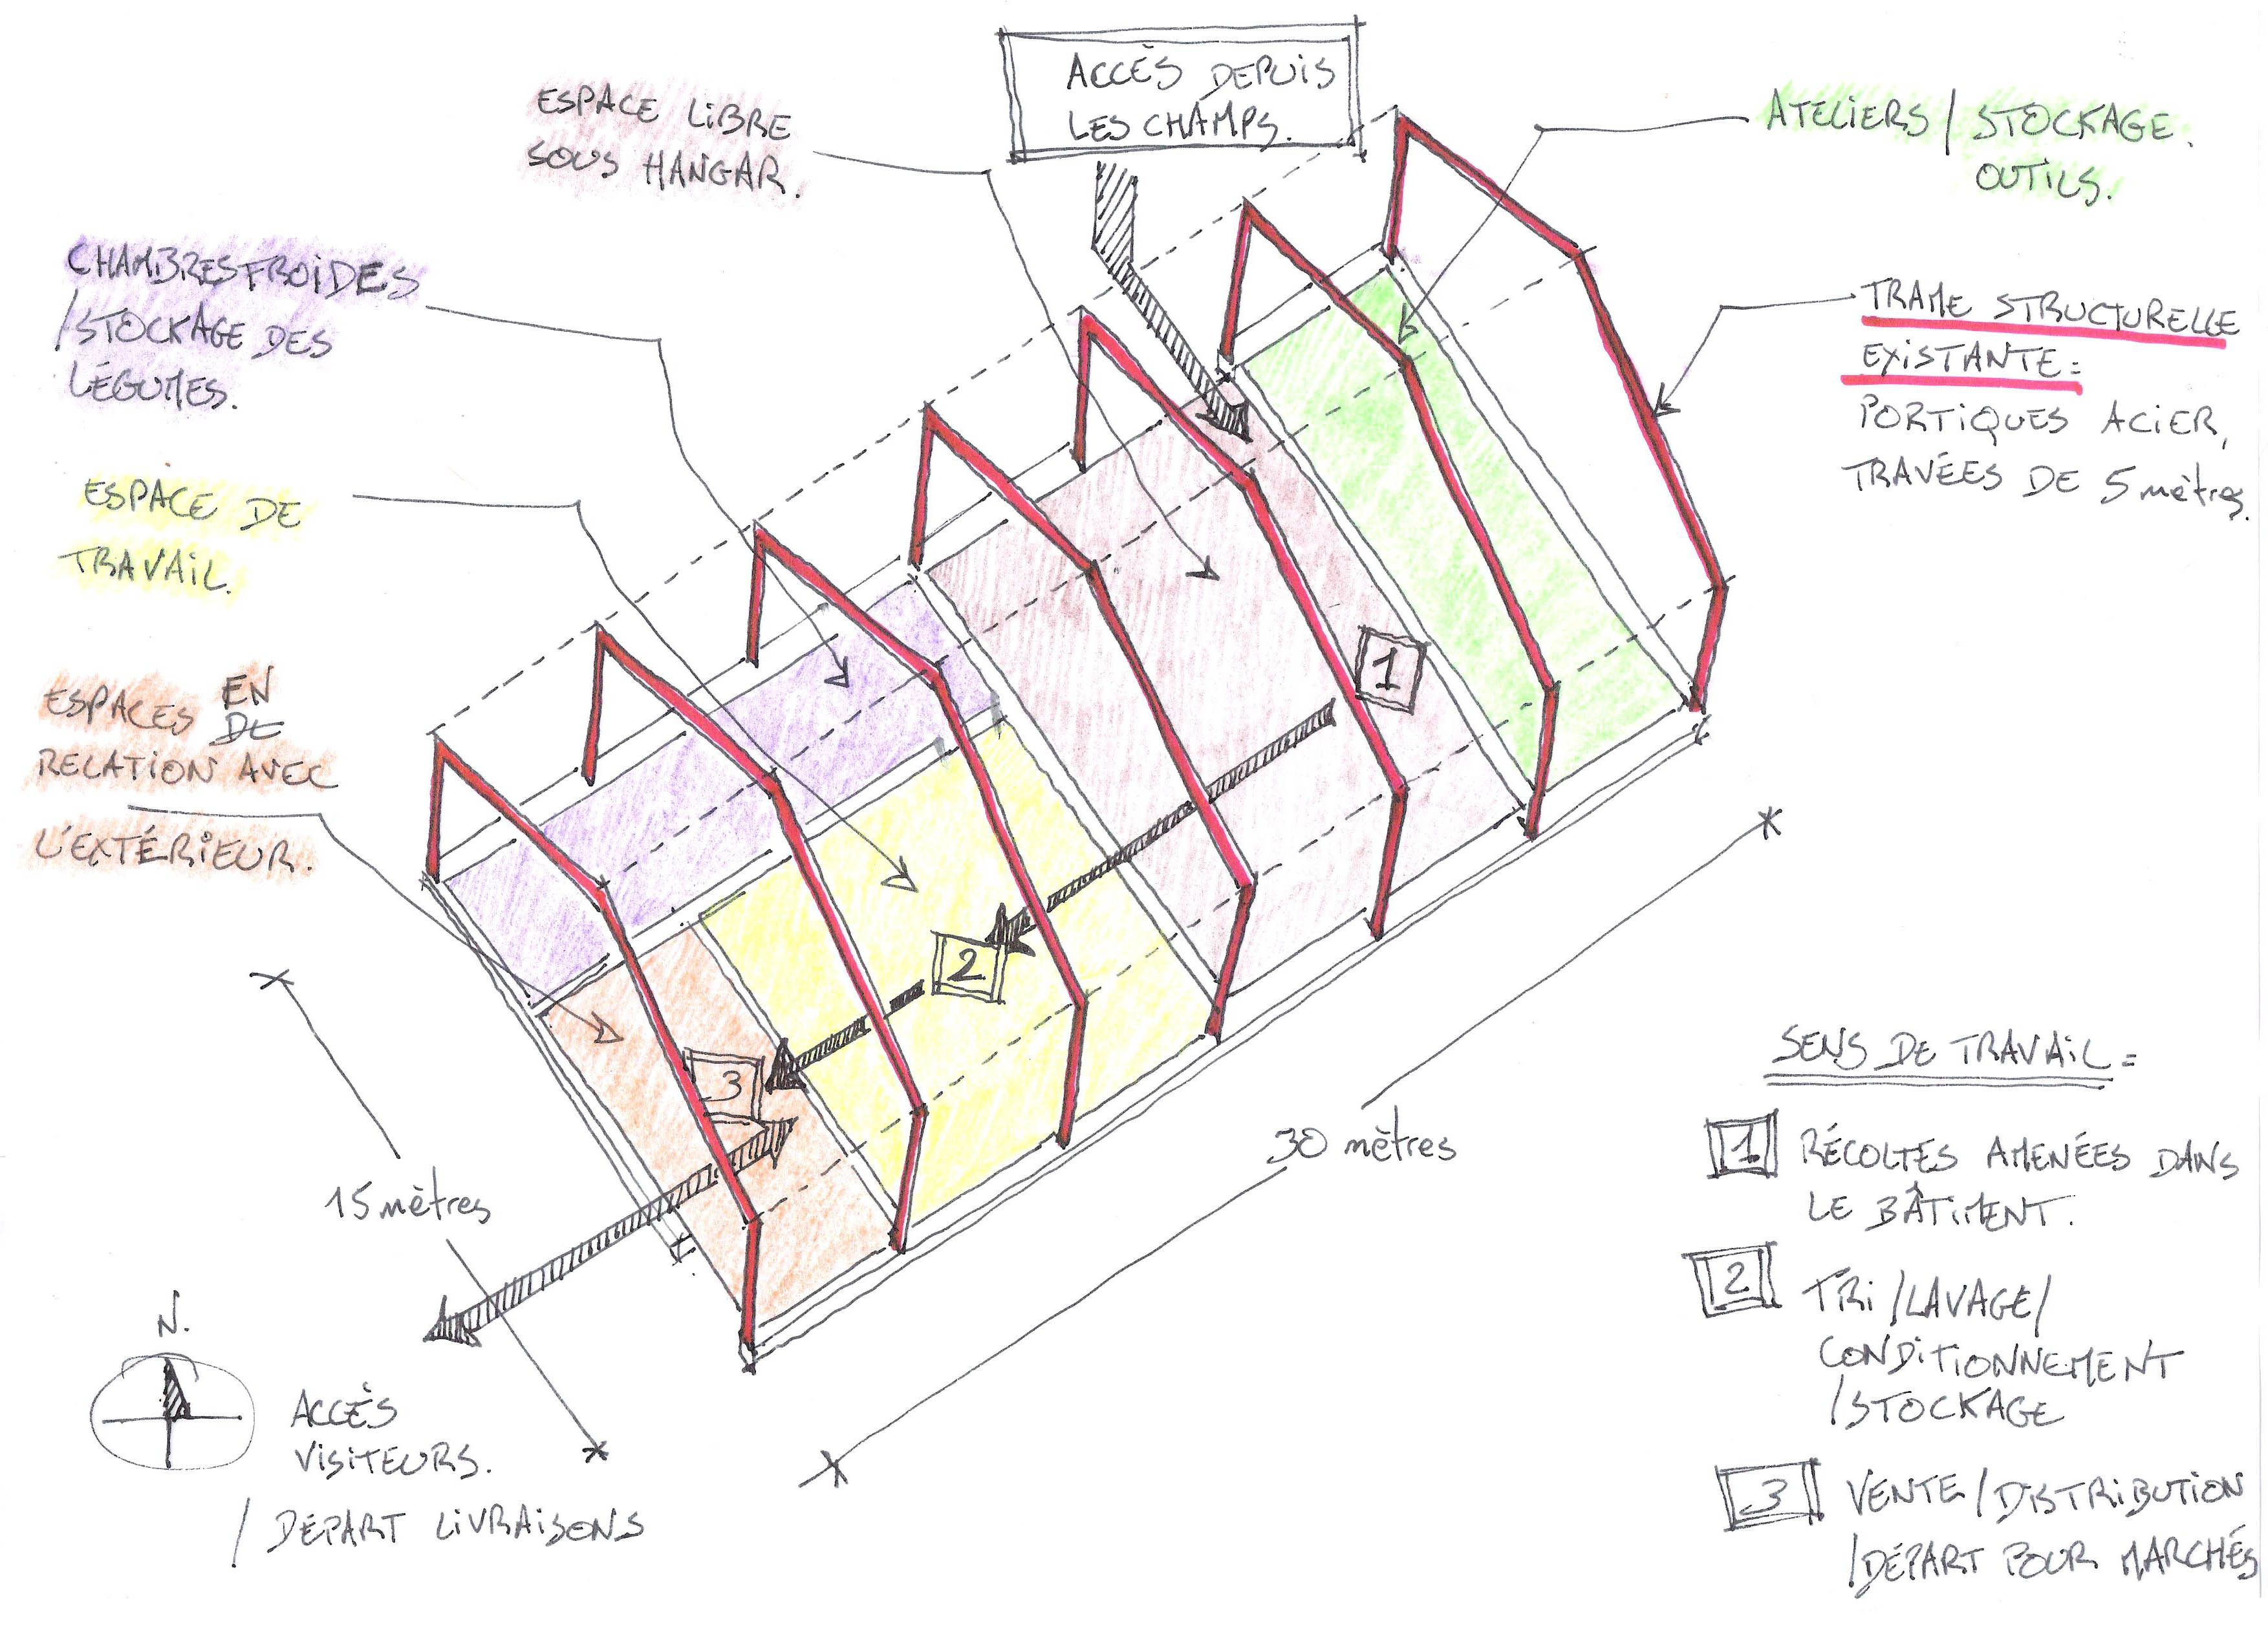 ACCÈS DEPUIS
LES CHAMPS.
ESPACE LIBRE
SOUS HANGAR.
ATELIERS / STOCKAGE.
OUTILS.
CHAMBRES FROIDES
/STOCKAGE DES
LÉGUMES.
TRAME STRUCTURELLE
EXISTANTE:
PORTIQUES ACIER,
TRAVÉES DE 5 mètres.
ESPACE DE
TRAVAIL.
ESPACES EN
DE
RELATION AVEC
L'EXTÉRIEUR.
1
2
3
15 mètres
30 mètres
N.
ACCÈS
VISITEURS.
/ DÉPART LIVRAISONS
SENS DE TRAVAIL:
1 RÉCOLTES AMENÉES DANS
LE BÂTIMENT.
2 TRI /LAVAGE/
CONDITIONNEMENT
/STOCKAGE
3 VENTE/DISTRIBUTION
/DÉPART POUR MARCHÉS